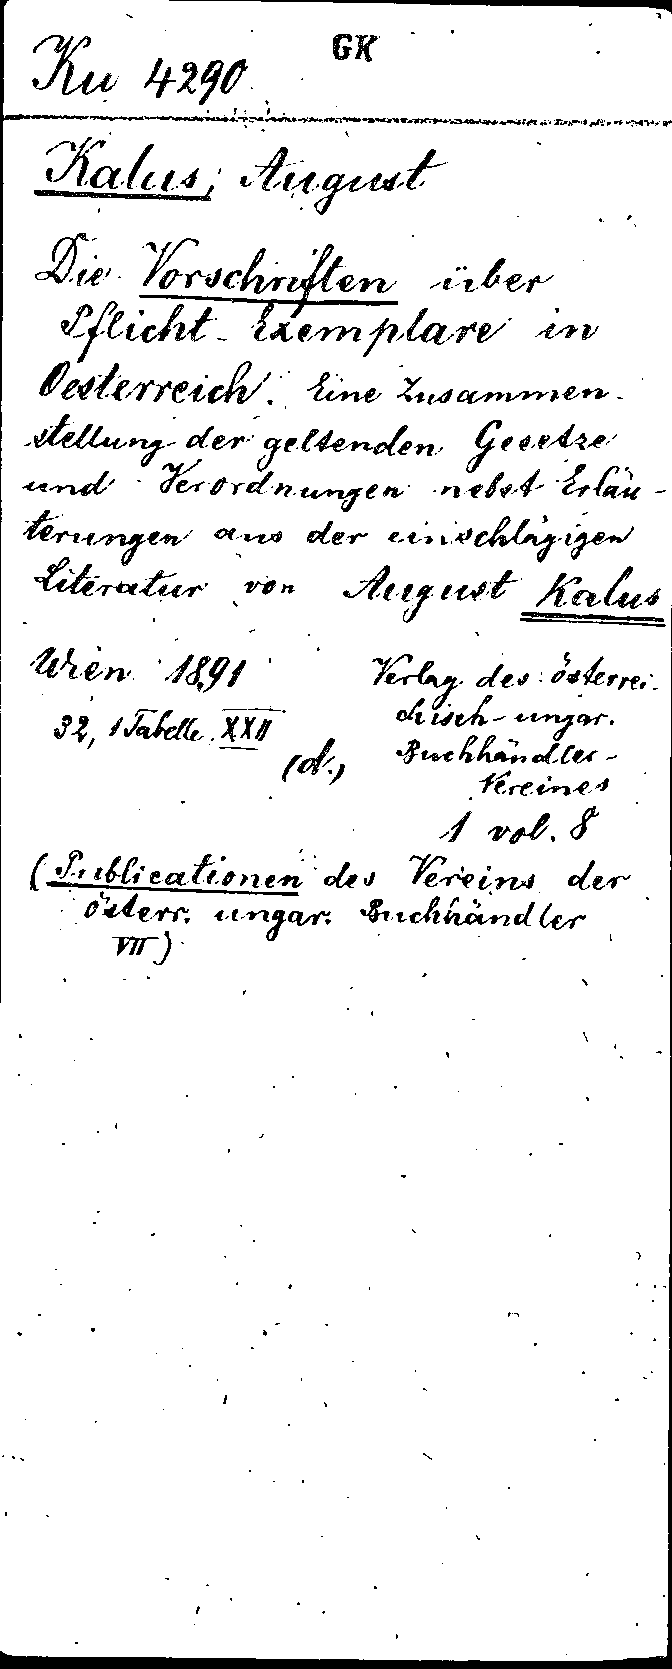 GK
Ku 4290
Kalus, August
Die Vorschriften über
Pflicht-Exemplare in
Oesterreich. Eine Zusammen-
stellung der geltenden Gesetze
und Verordnungen nebst Erläu-
terungen aus der einschlägigen
Literatur von August Kalus
Wien 1891
32, 1 Tabelle. XXII
(d.)
Verlag des österrei-
chisch-ungar.
Buchhändler-
Vereines
1 vol. 8
(Publicationen des Vereins der
österr. ungar. Buchhändler
VII)